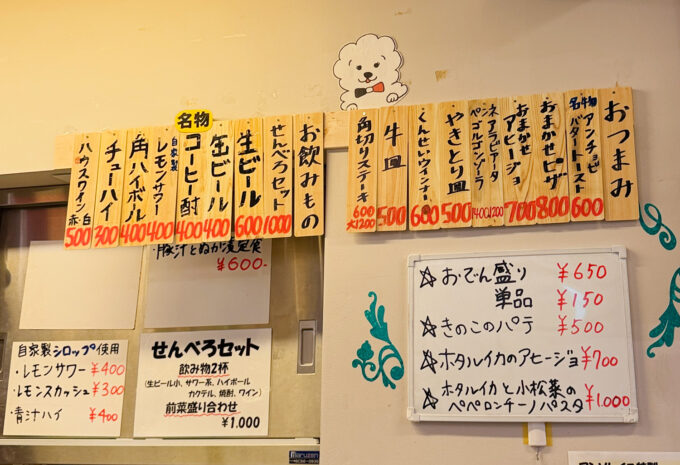 おつまみ
名物 アンチョビバタートースト 600
おまかせピザ 800
おまかせアヒージョ 700
ペンネ アラビアータ 1400
ゴルゴンゾーラ 1200
やきとり皿 500
くんせいウインナー 600
牛皿 500
角切りステーキ 600 大1200
お飲みもの
せんべろセット 1000
生ビール 600
缶ビール 400
名物
コーヒー酎 400
自家製 レモンサワー 400
角ハイボール 400
チューハイ 300
ハウスワイン 赤・白 500
☆おでん盛り ¥650
単品 ¥150
☆きのこのパテ ¥500
☆ホタルイカのアヒージョ ¥700
☆ホタルイカと小松菜の
ペペロンチーノパスタ ¥1,000
・豚汁とぬか漬定食
¥600-
自家製シロップ使用
・レモンサワー ¥400
・レモンスカッシュ ¥300
・青汁ハイ ¥400
せんべろセット
飲み物2杯
(生ビール小、サワー系、ハイボール
カクテル、焼酎、ワイン)
前菜盛り合わせ
¥1,000